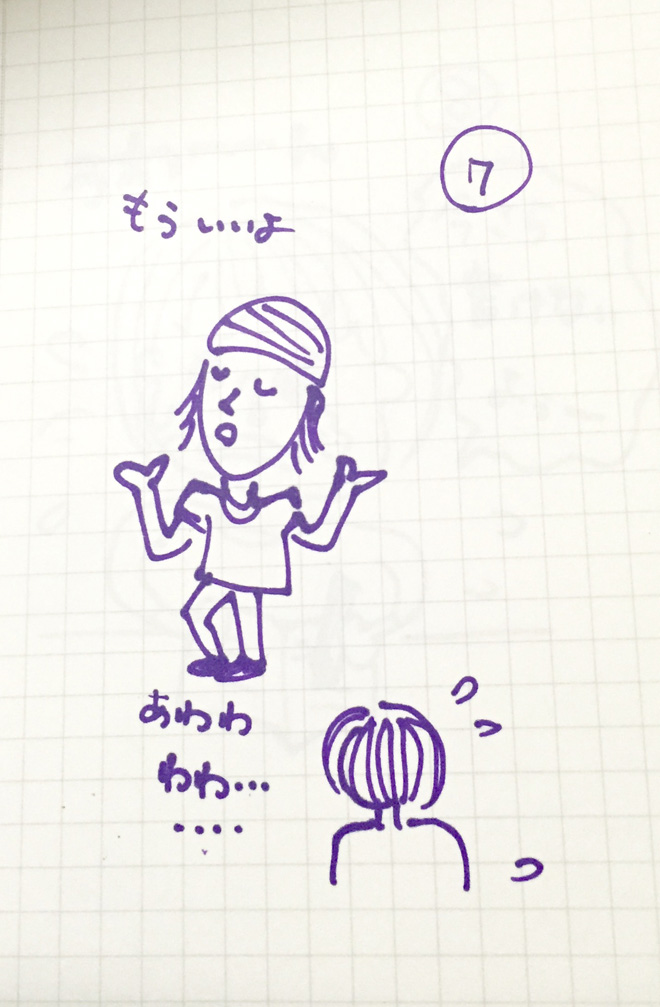 7
もういいよ
あわわ
わわ…
‥‥